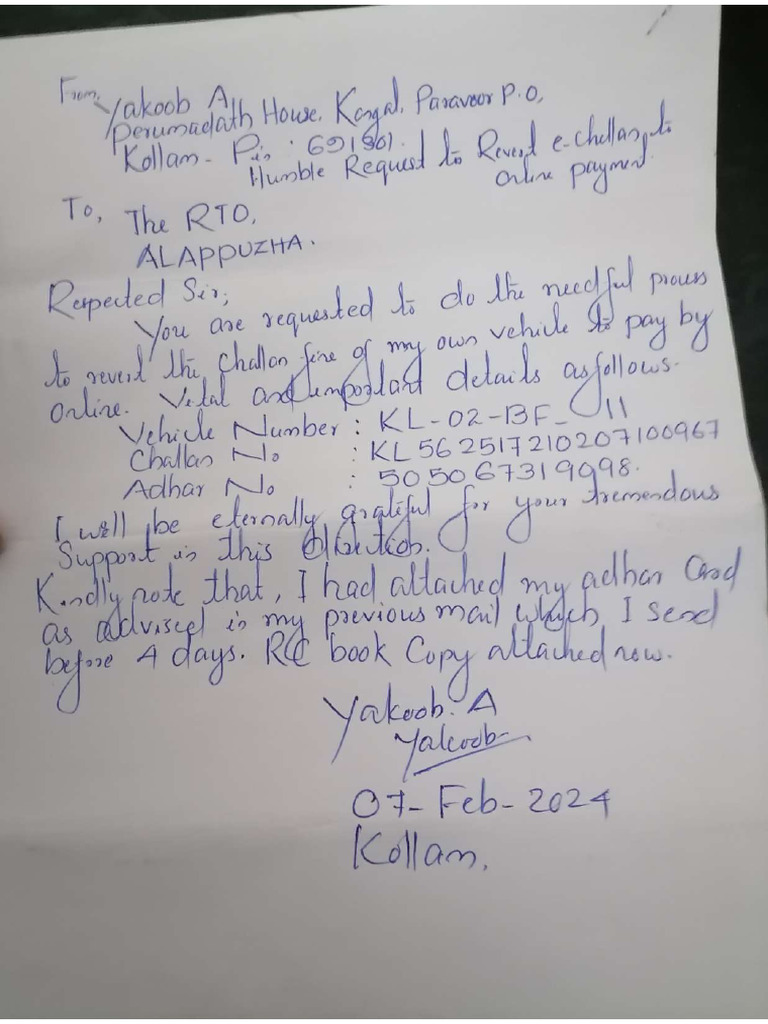 From,
Yakoob A
Perumadath House, Kongal, Paravoor P.O,
Kollam - Pin : 691301.
Humble Request to Revert e-challan to
online payment.
To,
The RTO,
ALAPPUZHA.
Respected Sir;
You are requested to do the needful process
to revert the challan fine of my own vehicle to pay by
online. Vital and important details as follows.
Vehicle Number : KL-02-BF- 11
Challan No : KL562517210207100967
Adhar No : 505067319098.
I will be eternally grateful for your tremendous
Support in this direction.
Kindly note that, I had attached my adhar Card
as advised in my previous mail which I send
before 4 days. RC book Copy attached now.
Yakoob. A
Yakoob
07-Feb-2024
Kollam.